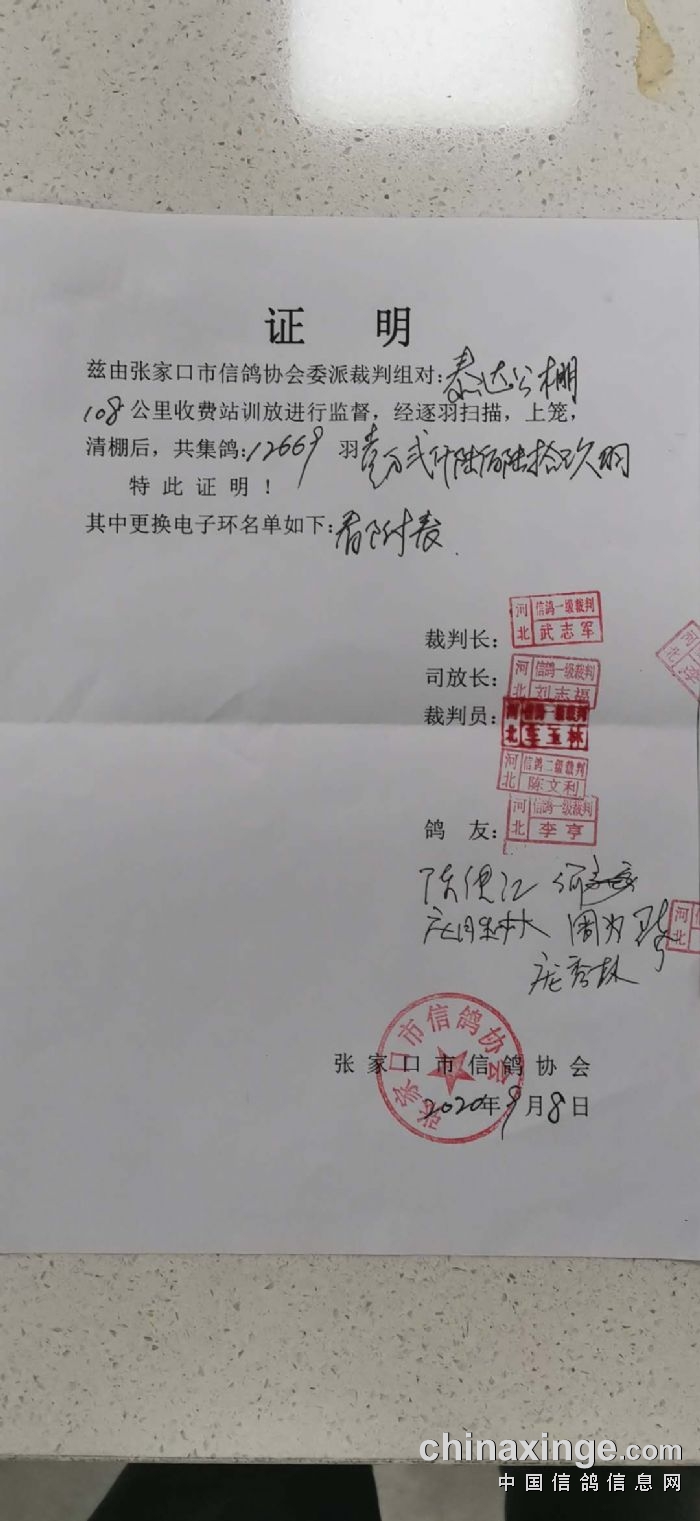 证 明
兹由张家口市信鸽协会委派裁判组对:泰达公棚
108公里收费站训放进行监督，经逐羽扫描，上笼，
清棚后，共集鸽:12669羽壹万贰仟陆佰陆拾玖羽
特此证明！
其中更换电子环名单如下:看附表
裁判长: 河北 信鸽一级裁判 武志军
司放长: 河北 信鸽一级裁判 刘志福
裁判员: 河北 信鸽一级裁判 李玉林
河北 信鸽二级裁判 陈文利
鸽 友: 河北 信鸽一级裁判 李亨
陈德江
庞秀林
张家口市信鸽协会
张家口市信鸽协会
2020年9月8日
河北
河北
chinaxinge.com
中国信鸽信息网